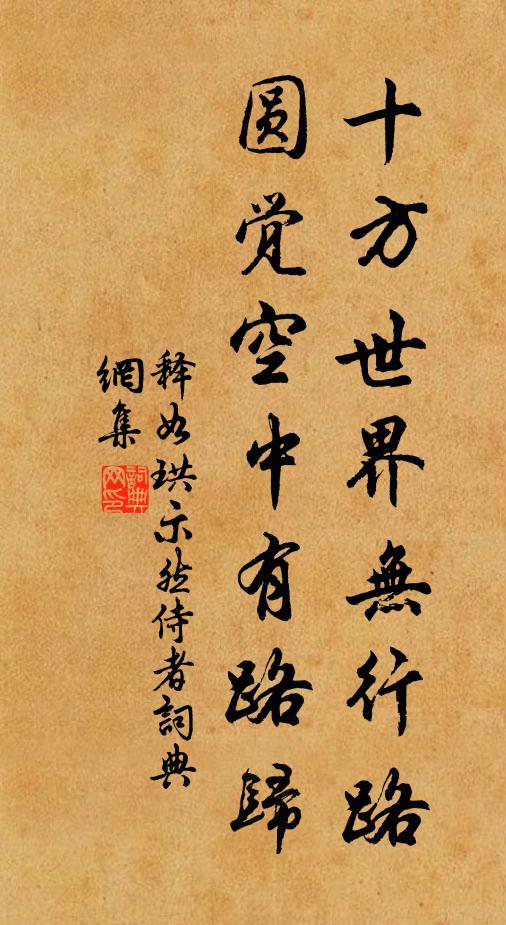 十方世界無行路
圆覺空中有路歸
释如珙示然侍者詞典
網集
詞典
网印